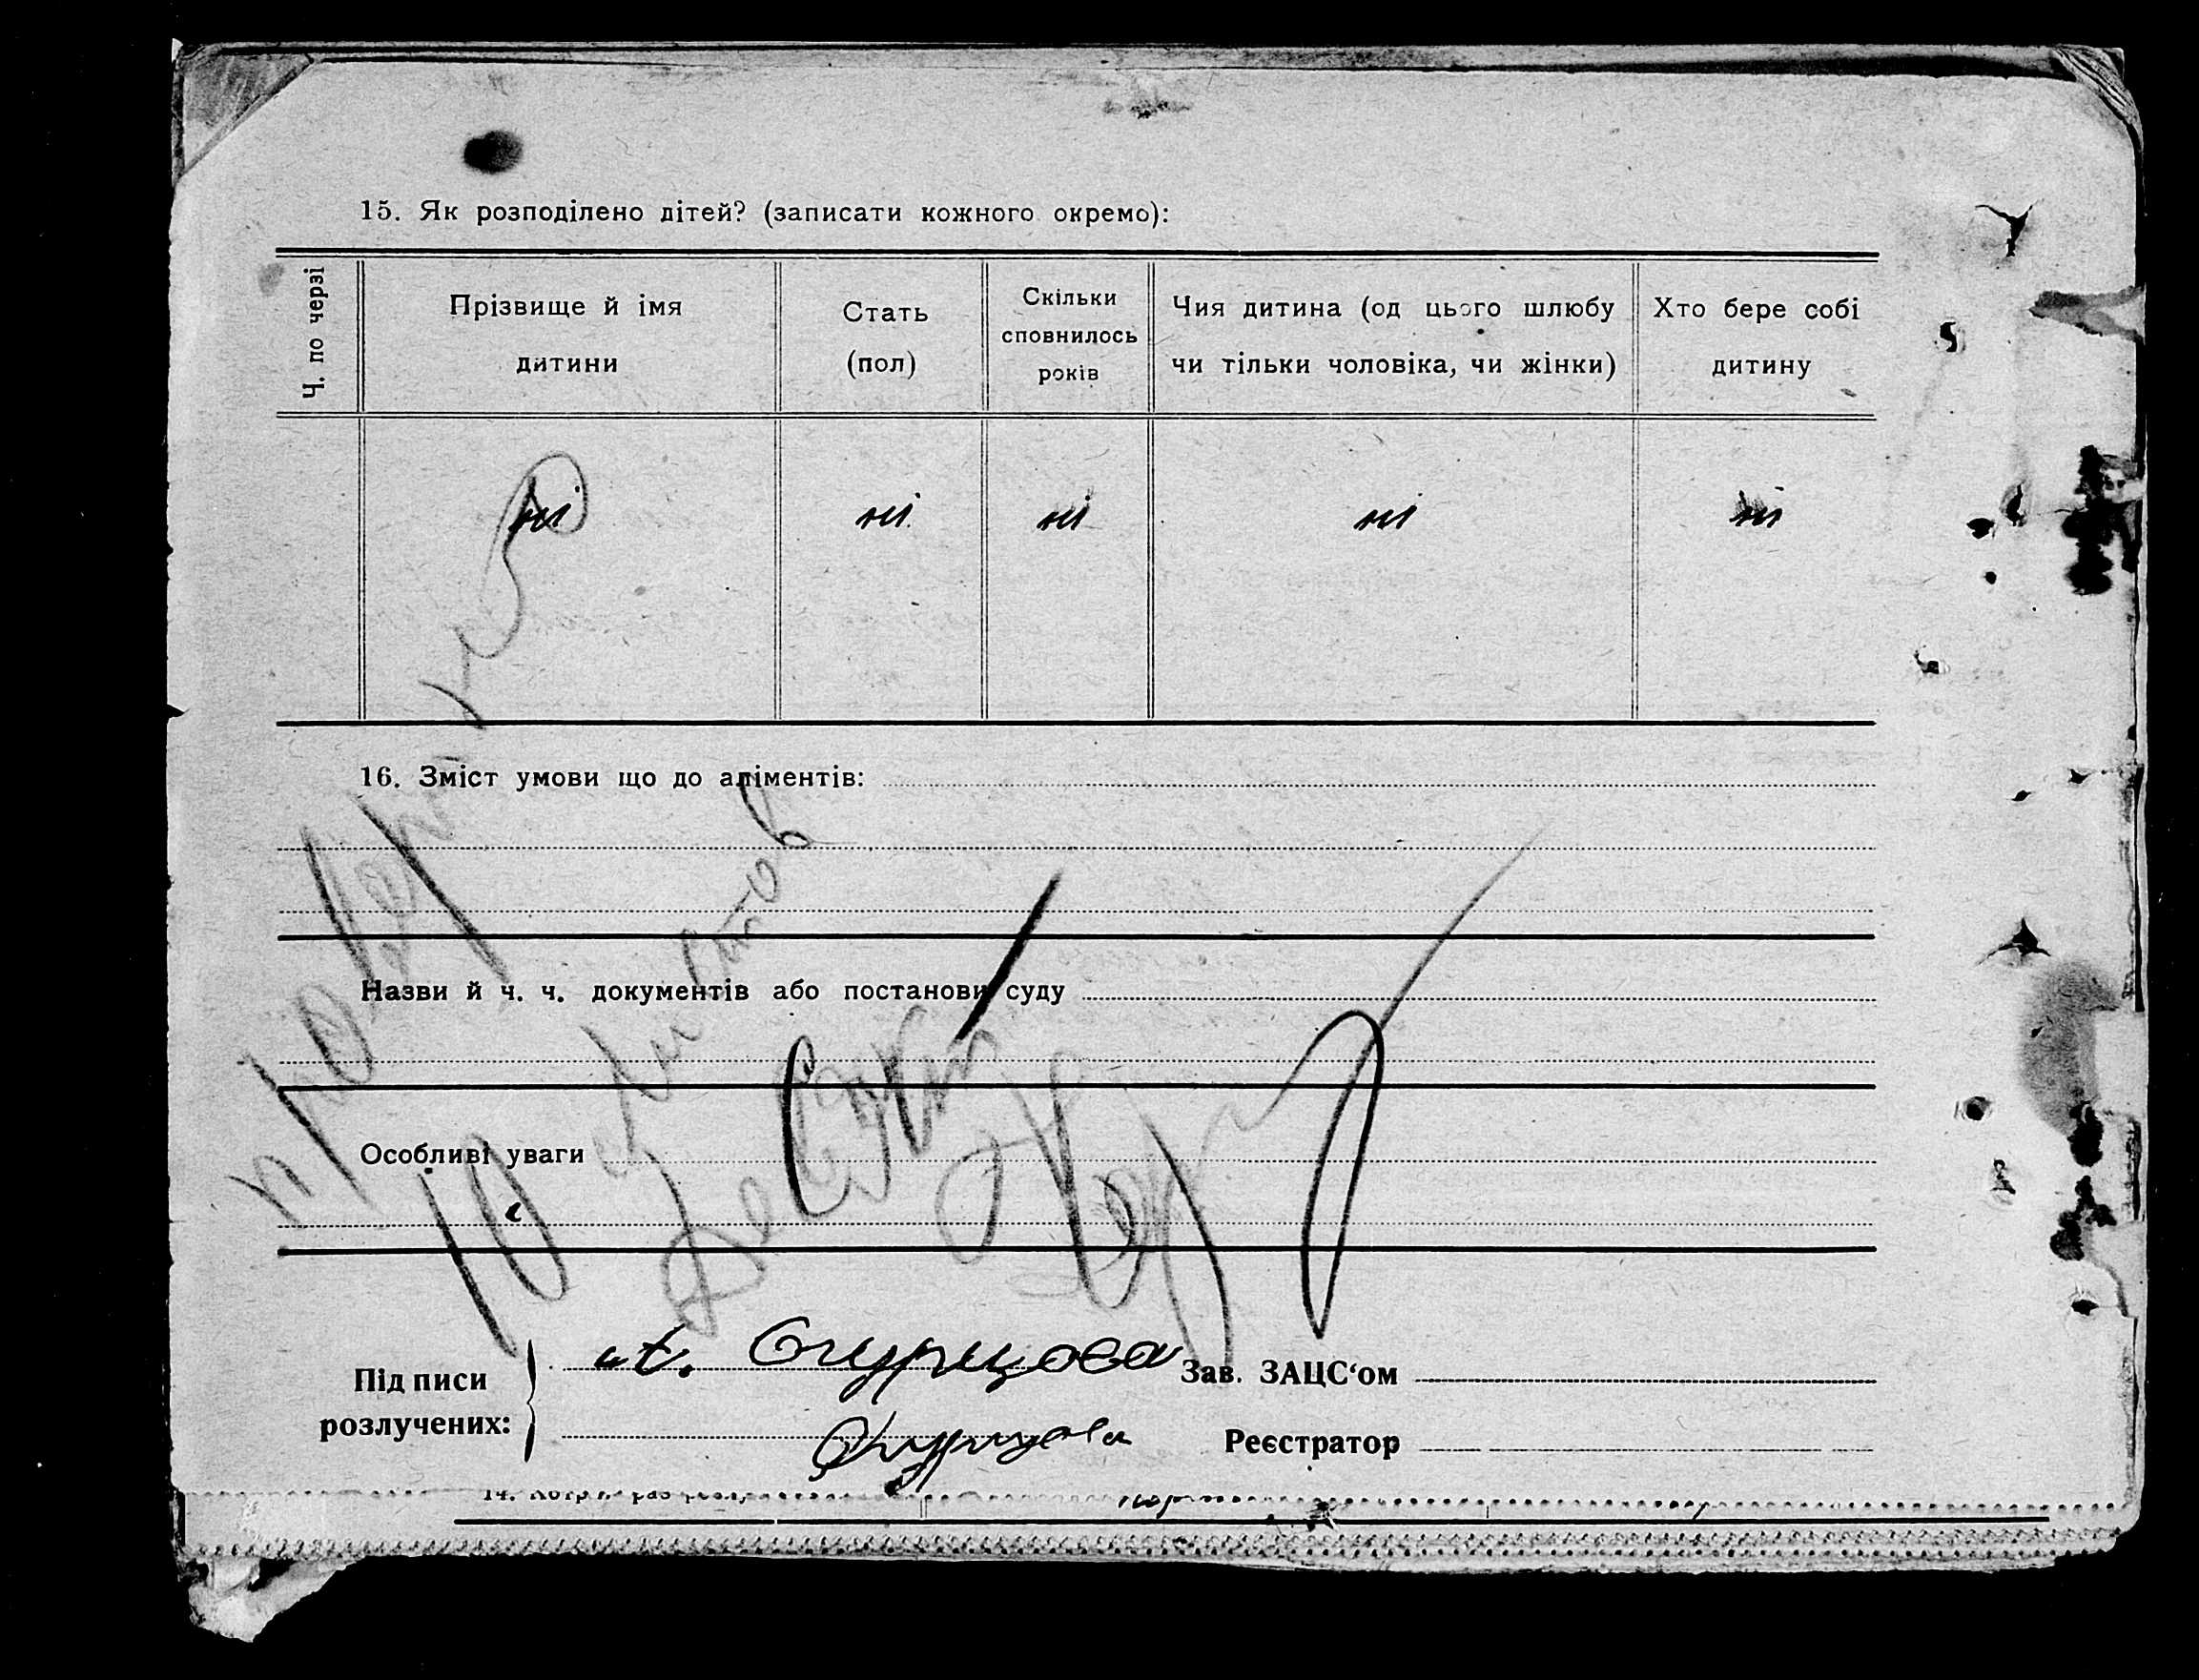 15. Як розподілено дітей? (записати кожного окремо):
Ч. по черзі
Прізвище й імя дитини
Стать (пол)
Скільки сповнилось років
Чия дитина (од цього шлюбу чи тільки чоловіка, чи жінки)
Хто бере собі дитину
ні ні ні ні ні
16. Зміст умови що до аліментів:
Назви й ч. ч. документів або постанови суду
Особливі уваги
10 листов
Десять
Підписи розлучених:
Огурцова
Зав. ЗАЦС‘ом
Огурцова
Реєстратор